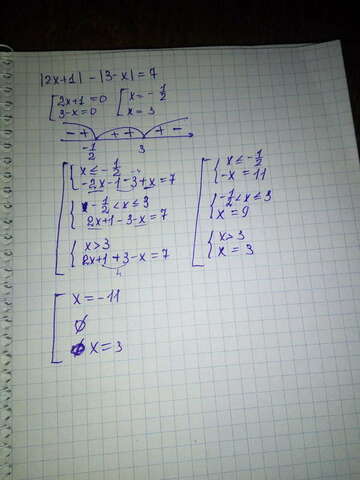 |2x+1| - |3-x| = 7
[2x+1=0 [x = -1/2
3-x=0 x = 3
- + + + + -
-1/2 3
[{x ≤ -1/2
-2x-1-3+x=7
{-1/2 < x ≤ 3
2x+1-3-x=7
{x>3
2x+1+3-x=7
4
[{x ≤ -1/2
-x = 11
{-1/2 < x ≤ 3
x = 9
{x>3
x = 3
[x = -11
∅
x = 3